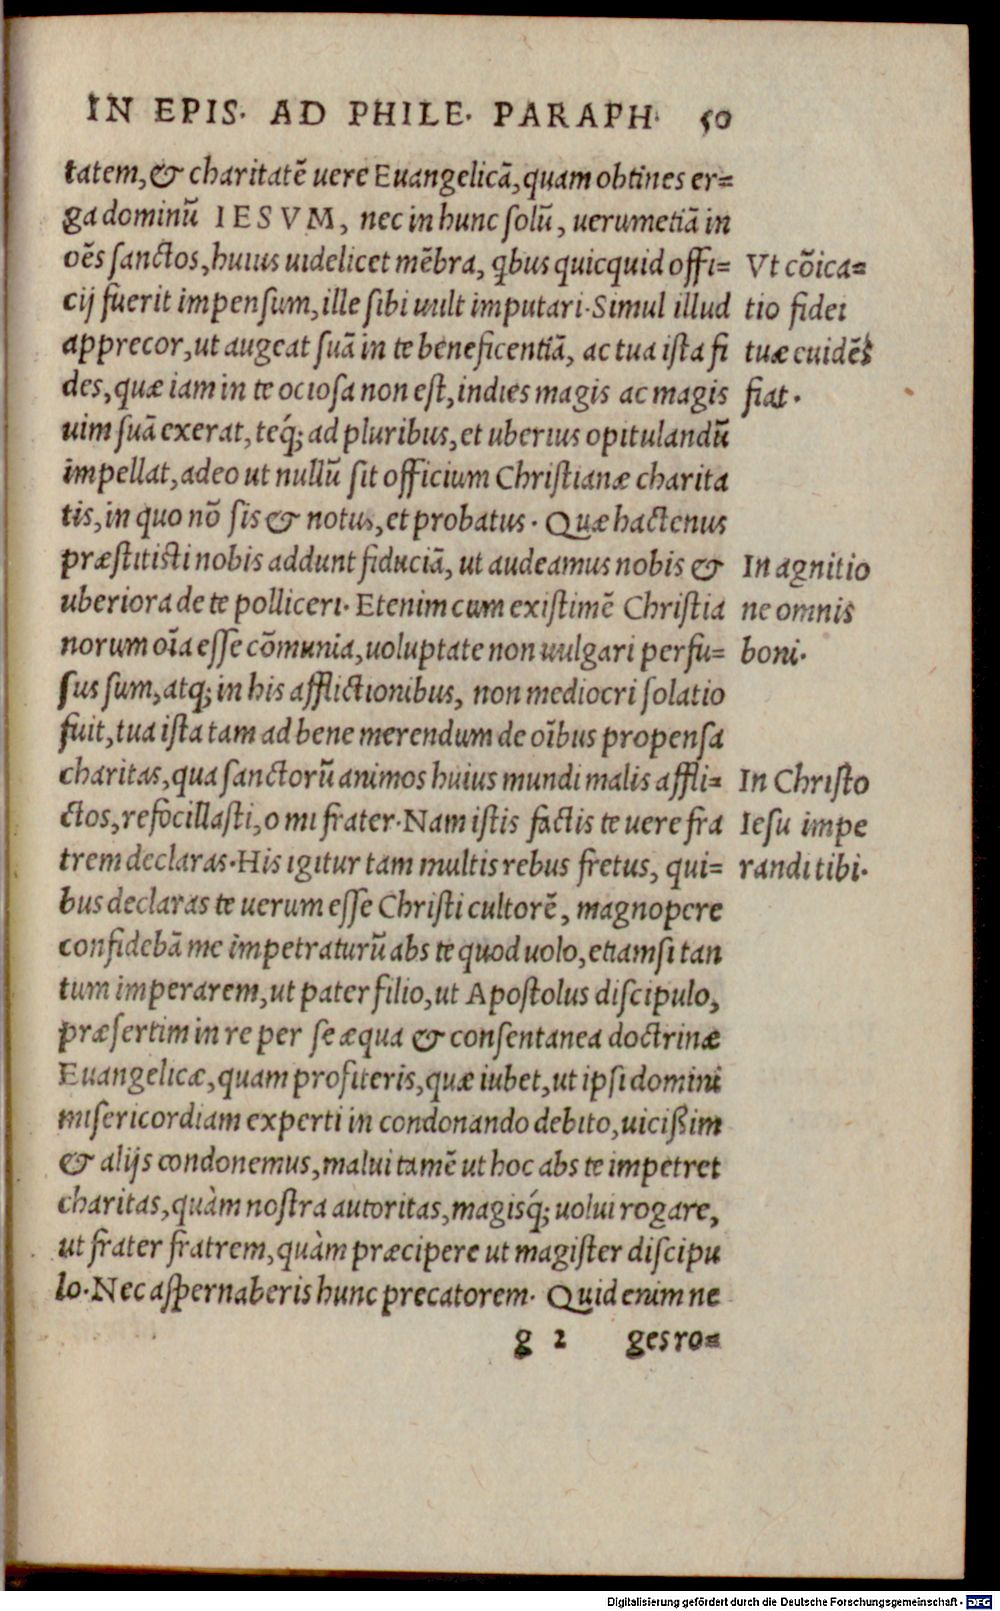 IN EPIS· AD PHILE· PARAPH· 50
tatem, & charitatē vere Euangelicā, quam obtines er=
ga dominū IESVM, nec in hunc solū, uerumetiā in
oēs sanctos, huius uidelicet mēbra, qbus quicquid offi=
cij fuerit impensum, ille sibi uult imputari· Simul illud
apprecor, ut augeat suā in te beneficentiā, ac tua ista fi
des, quæ iam in te ociosa non est, indies magis ac magis
uim suā exerat, teq́; ad pluribus, et uberius opitulandū
impellat, adeo ut nullū sit officium Christianæ charita
tis, in quo nō sis & notus, et probatus· Quæ hactenus
præstitisti nobis addunt fiduciā, ut audeamus nobis &
uberiora de te polliceri· Etenim cum existimē Christia
norum oīa esse cōmunia, uoluptate non uulgari perfu=
sus sum, atq; in his afflictionibus, non mediocri solatio
fuit, tua ista tam ad bene merendum de oībus propensa
charitas, qua sanctorū animos huius mundi malis affli=
ctos, refocillasti, o mi frater· Nam istis factis te uere fra
trem declaras· His igitur tam multis rebus fretus, qui=
bus declaras te uerum esse Christi cultorē, magnopere
confidebā me impetraturū abs te quod uolo, etiamsi tan
tum imperarem, ut pater filio, ut Apostolus discipulo,
præsertim in re per se æqua & consentanea doctrinæ
Euangelicæ, quam profiteris, quæ iubet, ut ipsi domini
misericordiam experti in condonando debito, uicißim
& alijs condonemus, malui tamē ut hoc abs te impetret
charitas, quàm nostra autoritas, magisq́; uolui rogare,
ut frater fratrem, quàm præcipere ut magister discipu
lo· Nec aspernaberis hunc precatorem· Quid enim ne
g 2 gesro=
Vt cōica=
tio fidei
tuæ euidēs
fiat·
In agnitio
ne omnis
boni·
In Christo
Iesu impe
randi tibi·
Digitalisierung gefördert durch die Deutsche Forschungsgemeinschaft - DFG